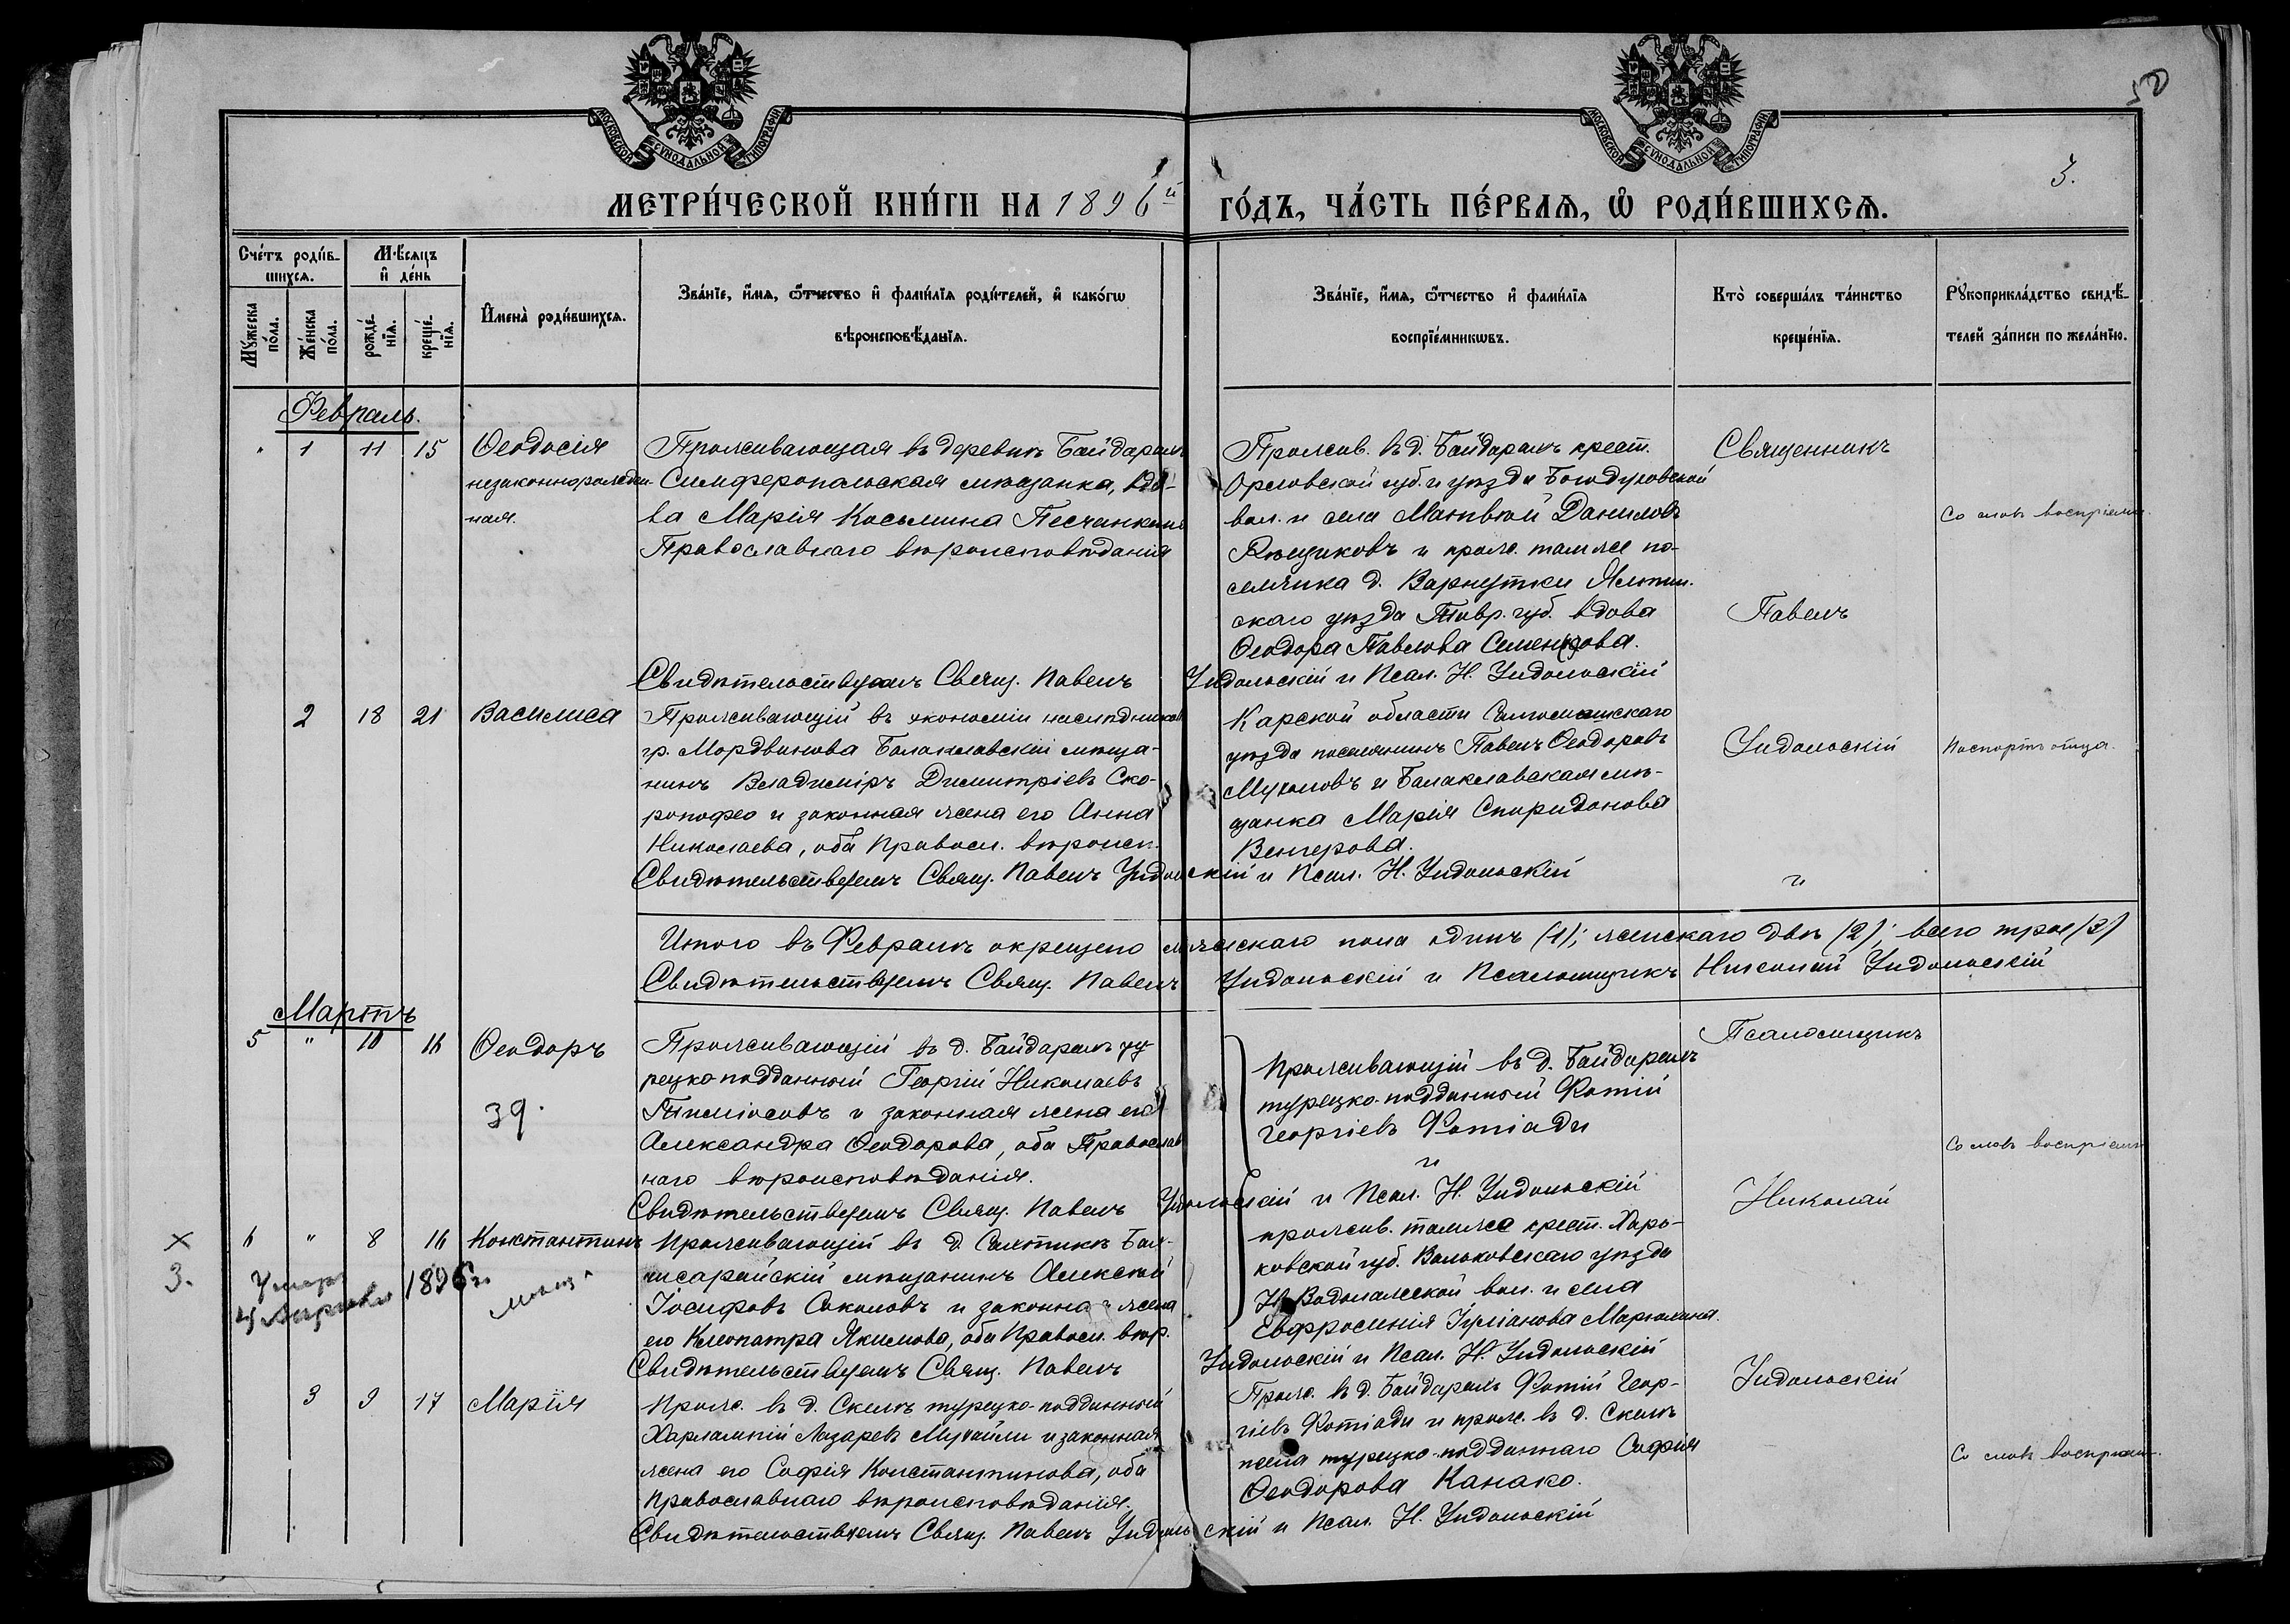 МОСКОВСКОЙ СѴНОДАЛЬНОЙ ТИПОГРАФІИ
МОСКОВСКОЙ СѴНОДАЛЬНОЙ ТИПОГРАФІИ
50
3.
МЕТРИ́ЧЕСКОЙ КНИ́ГИ НА 1896й ГО́ДЪ, ЧА́СТЬ ПЕ́РВАѦ, Ѡ РОДИ́ВШИХСѦ.
Сче́тъ роди́в-
шихсѧ.
Мѣ́сѧцъ
и҆ де́нь
Мꙋ́жеска по́ла.
Же́нска по́ла.
рожде́-
нїѧ.
креще́-
нїѧ.
И҆мена̀ роди́вшихсѧ.
Зва́нїе, и҆́мѧ, ѻ҆́тчество и҆ фами́лїѧ роди́телей, и҆ како́гѡ
вѣроисповѣ́данїѧ.
Зва́нїе, и҆́мѧ, ѻ҆́тчество и҆ фами́лїѧ
воспрїе́мникѡвъ.
Кто̀ соверша́лъ та́инство
креще́нїѧ.
Рꙋкоприкла́дство свидѣ́-
телей за́писи по жела́нїю.
Февраль.
" 1 11 15 Ѳеодосія
незаконнорожден-
ная.
Проживающая въ деревнѣ Байдарахъ
Симферопольская мѣщанка, вдо-
ва Марія Косьмина Песчанкина
Православнаго вѣроисповѣданія
Прожив. въ д. Байдарахъ крест.
Орловской губ. и уѣзда Богодуховской
вол. и села Матвѣй Даниловъ
Рѣщиковъ и прож. там же по-
селянка д. Варнутки Ялтин-
скаго уѣзда Тавр. губ. вдова
Ѳеодора Павлова Семенцова.
Священникъ
Павелъ
Со словъ воспріемн.
Свидѣтельствуемъ Свящ. Павелъ Undольскій и Псал. Н. Ундольскій
2 18 21 Василиса
Проживающій въ экономіи наслѣдниковъ
гр. Мордвинова Балаклавскій мѣща-
нинъ Владиміръ Димитріевъ Ско-
рпофео и законная жена его Анна
Николаева, оба Правосл. вѣроисп.
Карской области
уѣзда поселянинъ Павелъ Ѳеодоровъ
и Балаклавская мѣ-
щанка Марія Спиридонова
Венгерова.
Ундольскій
Паспортъ отца.
Свидѣтельствуемъ Свящ. Павелъ Ундольскій и Псал. Н. Ундольскій
и
Итого въ Февралѣ окрещено мужескаго пола одинъ (1); женскаго двѣ (2); всего трое (3)
Свидѣтельствуемъ Свящ. Павелъ Ундольскій и Псаломщикъ Николай Ундольскій
Мартъ
5 " 10 16 Ѳеодоръ
39.
Проживающій въ д. Байдарахъ ту-
рецко-подданный Георгій Николаевъ
и законная жена его
Александра Ѳеодорова, оба Православ-
наго вѣроисповѣданія.
Проживающій въ д. Байдарахъ
турецко-подданный Фотій
Георгіевъ Фотіади
и
Псаломщикъ
Со словъ воспріемн.
Свидѣтельствуемъ Свящ. Павелъ Ундольскій и Псал. Н. Ундольскій
Николай
х
3.
6 " 8 16 Константинъ
Умеръ
1896 г.
Проживающій въ д. Сахтикъ Бах-
чисарайскій мѣщанинъ Алексѣй
Іосифовъ Соколовъ и законная жена
его Клеопатра Якимова, оба Правосл. вѣр.
прожив. тамже крест. Харь-
ковской губ. Валковскаго уѣзда
Н. Водолажской вол. и села
Евфросинія Іуліанова
Свидѣтельствуемъ Свящ. Павелъ Ундольскій и Псал. Н. Ундольскій
Ундольскій
3 9 17 Марія
Прож. въ д. Скелѣ турецко-подданный
Харлампій Лазаревъ и законная
жена его Софія Константинова, оба
Православнаго вѣроисповѣданія.
Прож. въ д. Байдарахъ Фотій Геор-
гіевъ Фотіади и прож. въ д. Скелѣ
жена турецко-подданнаго Софія
Ѳеодорова Канако.
Со словъ воспріем.
Свидѣтельствуемъ Свящ. Павелъ Ундольскій и Псал. Н. Ундольскій